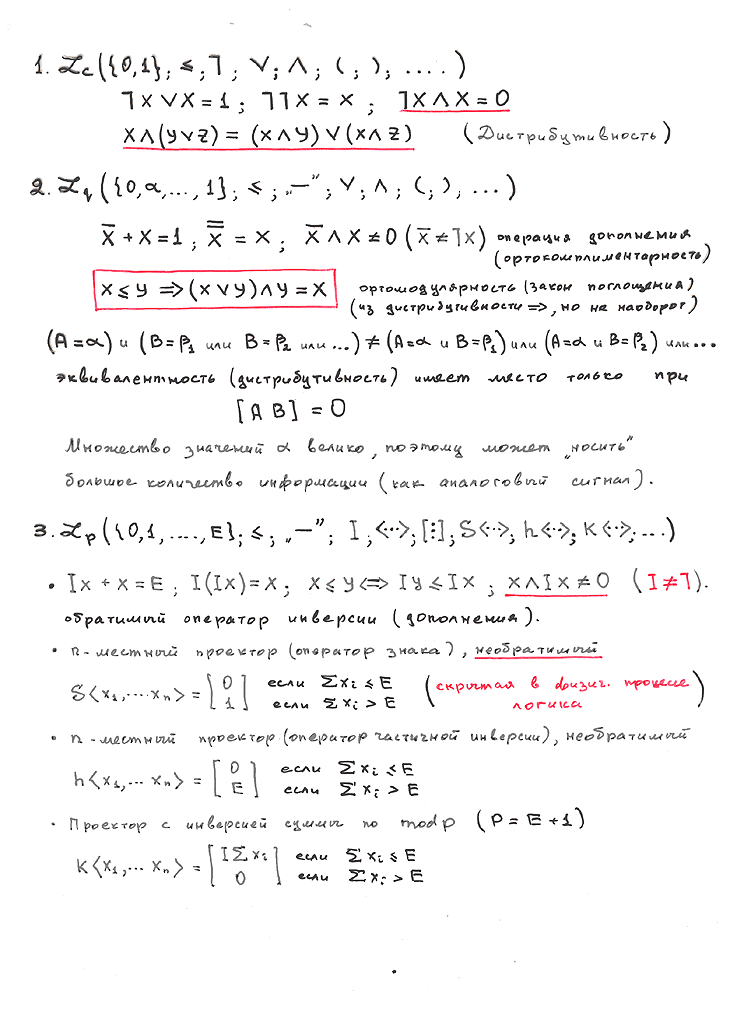 1. ℒc({0,1}; ≤; ⅂; ∨; ∧; (; ); ....)
⅂x ∨ x = 1; ⅂⅂x = x; ⅂x ∧ x = 0
x∧(y∨z) = (x∧y)∨(x∧z) (Дистрибутивность)
2. ℒq({0,α,..., 1}; ≤; „—”; ∨; ∧; (; ), ...)
x̅ + x = 1; x̿ = x; x̅ ∧ x ≠ 0 (x̅ ≠ ⅂x) операция дополнения
(ортокомплиментарность)
x ≤ y ⇒ (x ∨ y) ∧ y = x ортомодулярность (закон поглощения)
(из дистрибутивности ⇒, но не наоборот)
(A = α) и (B = β₁ или B = β₂ или ...) ≠ (A = α и B = β₁) или (A = α и B = β₂) или ...
эквивалентность (дистрибутивность) имеет место только при
[A B] = 0
Множество значений α велико, поэтому может „носить”
большое количество информации (как аналоговый сигнал).
3. ℒp({0,1,....,E}; ≤; „—”; I; <··>; [⋮]; S<··>; h<··>; K<··>; ...)
• Ix + x = E; I(Ix) = x; x ≤ y ⇔ Iy ≤ Ix; x ∧ Ix ≠ 0 (I ≠ ⅂).
обратимый оператор инверсии (дополнения).
• n-местный проектор (оператор знака), необратимый
S<x₁,... xₙ> = [0 если Σxᵢ ≤ E (скрытая в физич. процессе
1] если Σxᵢ > E логика)
• n-местный проектор (оператор частичной инверсии), необратимый
h<x₁,... xₙ> = [0 если Σxᵢ ≤ E
E] если Σxᵢ > E
• Проектор с инверсией суммы по mod p (P = E + 1)
K<x₁,... xₙ> = [IΣxᵢ если Σxᵢ ≤ E
0] если Σxᵢ > E